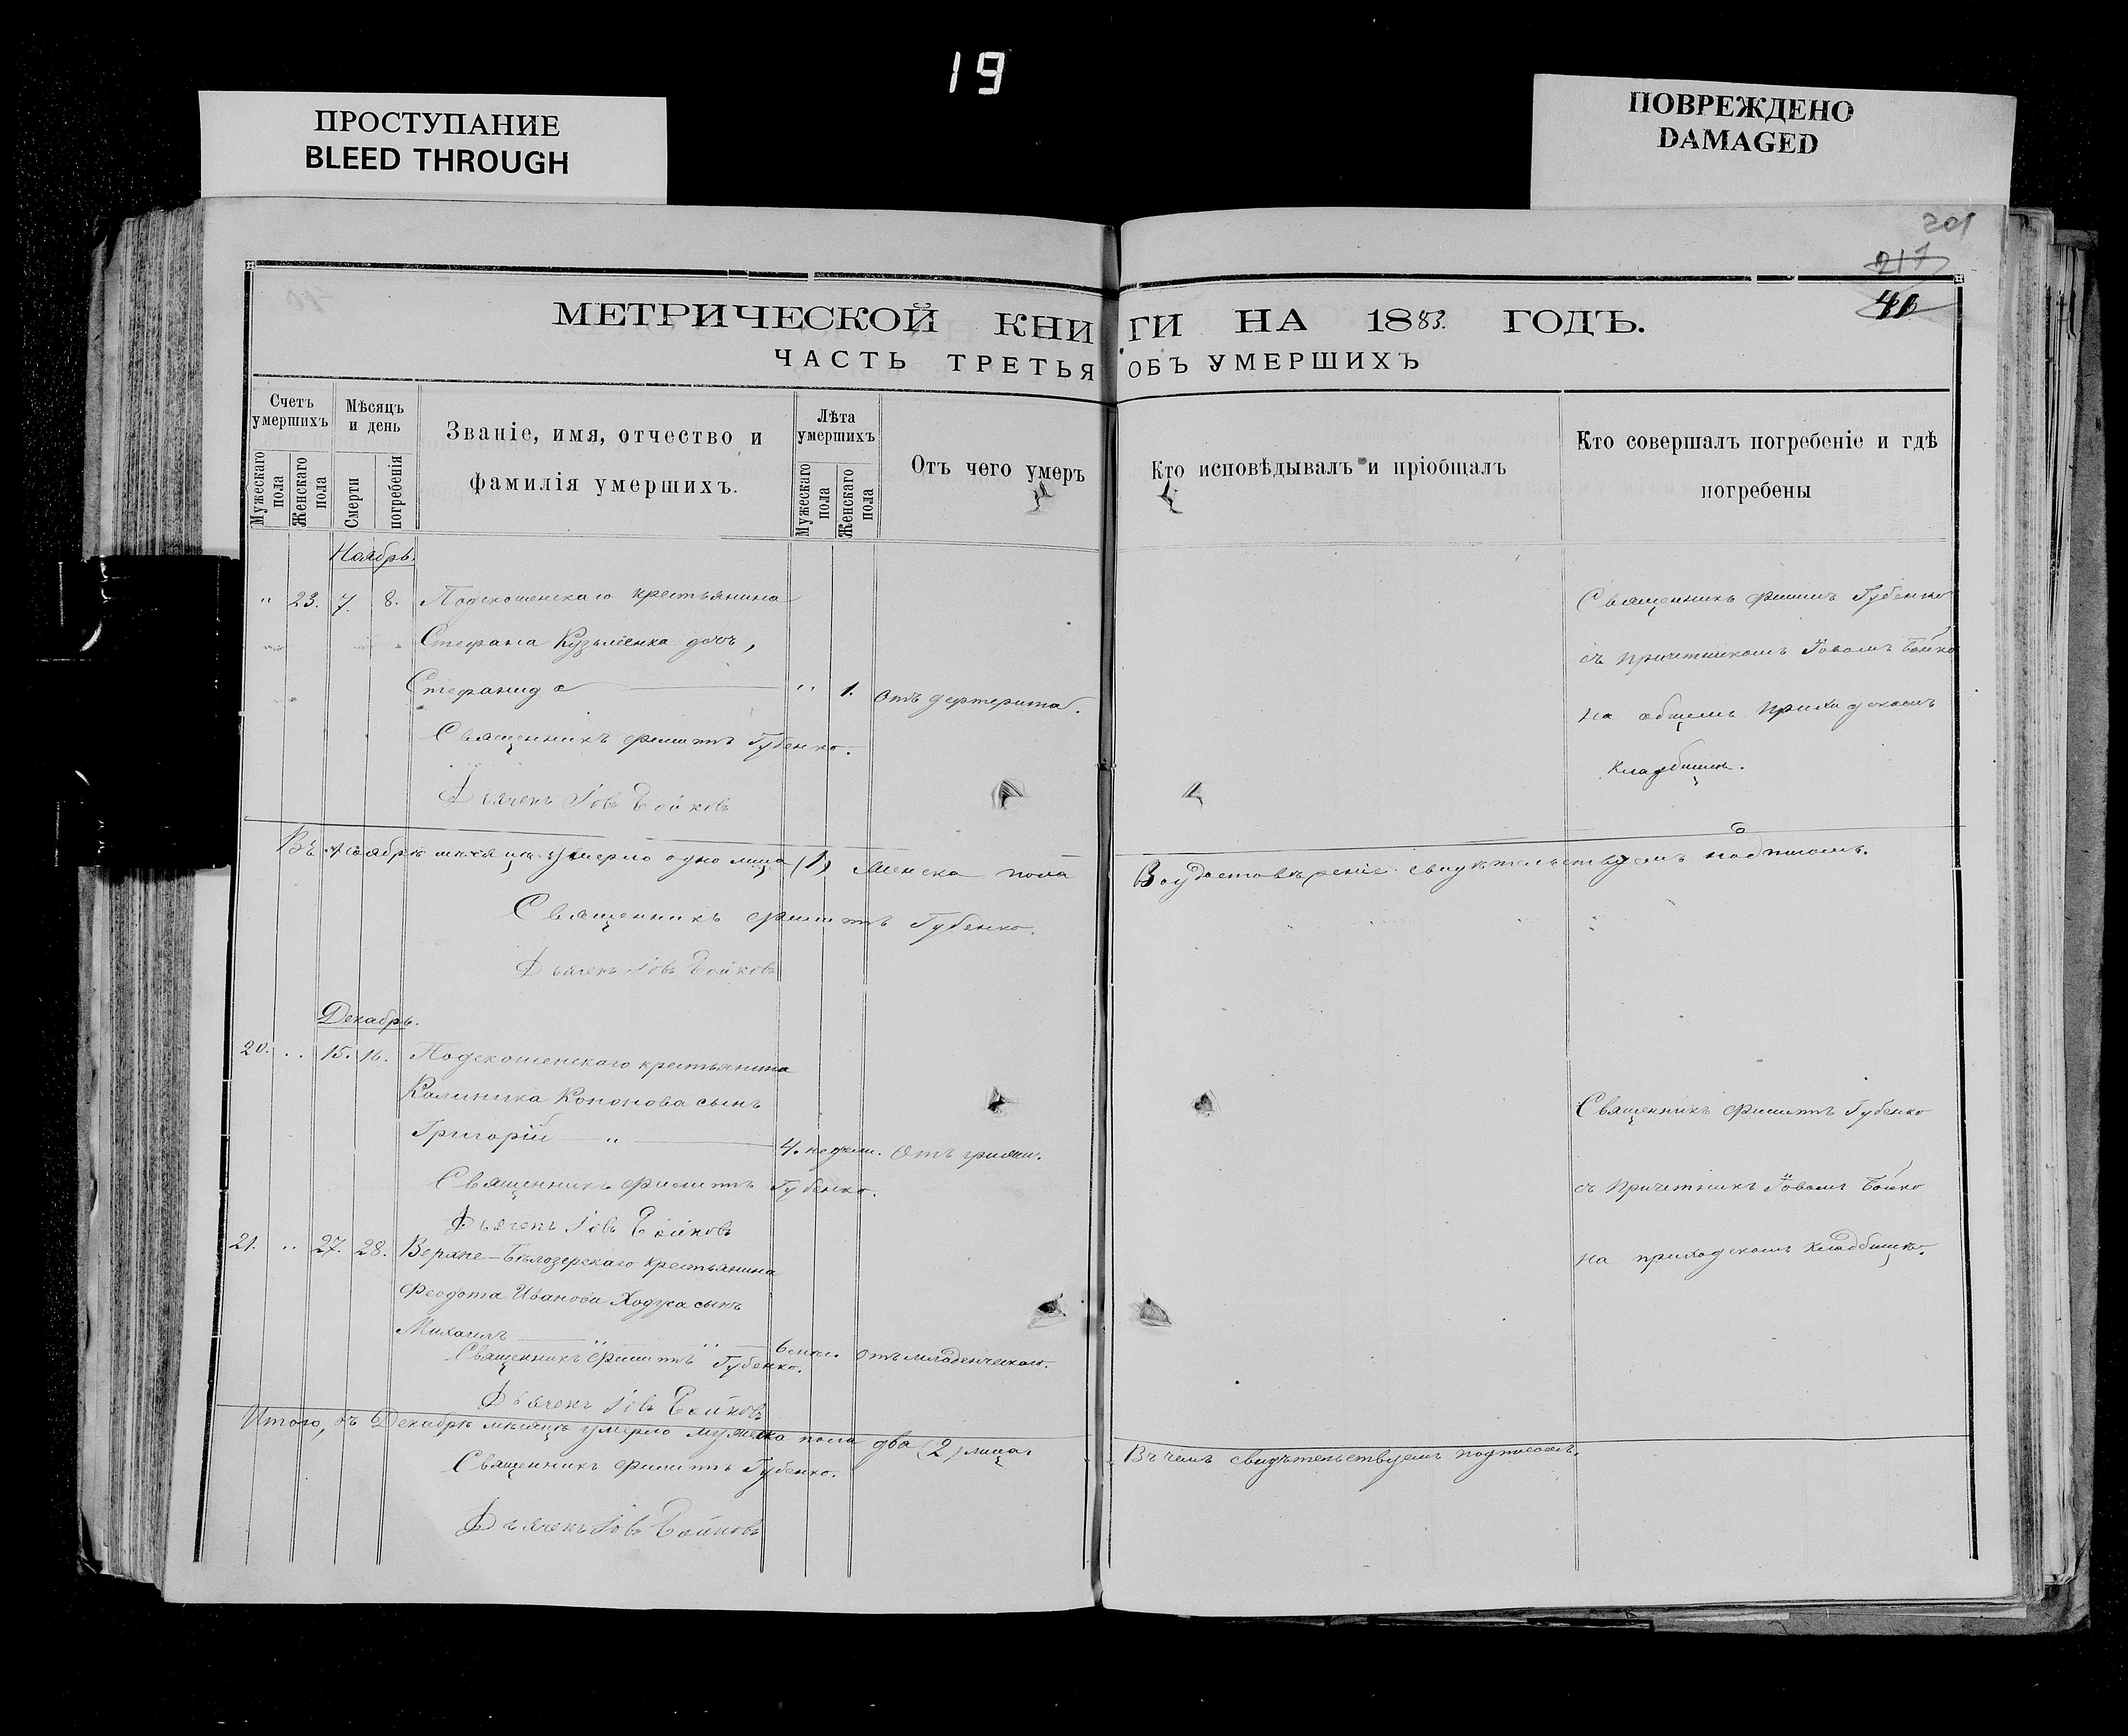 19
ПРОСТУПАНИЕ
BLEED THROUGH
ПОВРЕЖДЕНО
DAMAGED
201
217
МЕТРИЧЕСКОЙ КНИГИ НА 1883. ГОДЪ.
ЧАСТЬ ТРЕТЬЯ ОБЪ УМЕРШИХЪ
Счетъ умершихъ
Мужескаго пола
Женскаго пола
Мѣсяцъ и день
Смерти
погребенія
Званіе, имя, отчество и
фамилія умершихъ.
Лѣта умершихъ
Мужескаго пола
Женскаго пола
Отъ чего умеръ
Кто исповѣдывалъ и пріобщалъ
Кто совершалъ погребеніе и гдѣ
погребены
Ноябрь.
" 23. 7. 8. Подскошенскаго крестьянина
Стефана Кузьменка дочь,
Стефанида " 1. Отъ дефтерита.
Священникъ Филиппъ Губенко.
Дьячекъ Іовъ Бойковъ
Священникъ Филиппъ Губенко
съ причетникомъ Іовомъ Бойко
на общемъ приходскомъ
кладбищѣ.
Въ Ноябрѣ мѣсяцѣ умерло одно лице (1) женска пола
Во удостовѣреніе свидѣтельствуемъ подписомъ.
Священникъ Филиппъ Губенко.
Дьячекъ Іовъ Бойковъ
Декабрь.
20. " 15. 16. Подскошенскаго крестьянина
Калиника Кононова сынъ
Григорій " 4. недели. Отъ грижи.
Священникъ Филиппъ Губенко.
Дьячекъ Іовъ Бойковъ
Священникъ Филиппъ Губенко
съ Причетникъ Іовомъ Бойко
на приходскомъ кладбищѣ.
21. " 27. 28. Верхне-Бѣлозерскаго крестьянина
Феодота Иванова Ходуса сынъ
Михаилъ 6 мѣс. Отъ младенческаго.
Священникъ Филиппъ Губенко.
Дьячекъ Іовъ Бойковъ
Итого, въ Декабрѣ мѣсяцѣ умерло мужеска пола два (2) лица.
Въ чемъ свидѣтельствуемъ подписомъ.
Священникъ Филиппъ Губенко.
Дьячекъ Іовъ Бойковъ